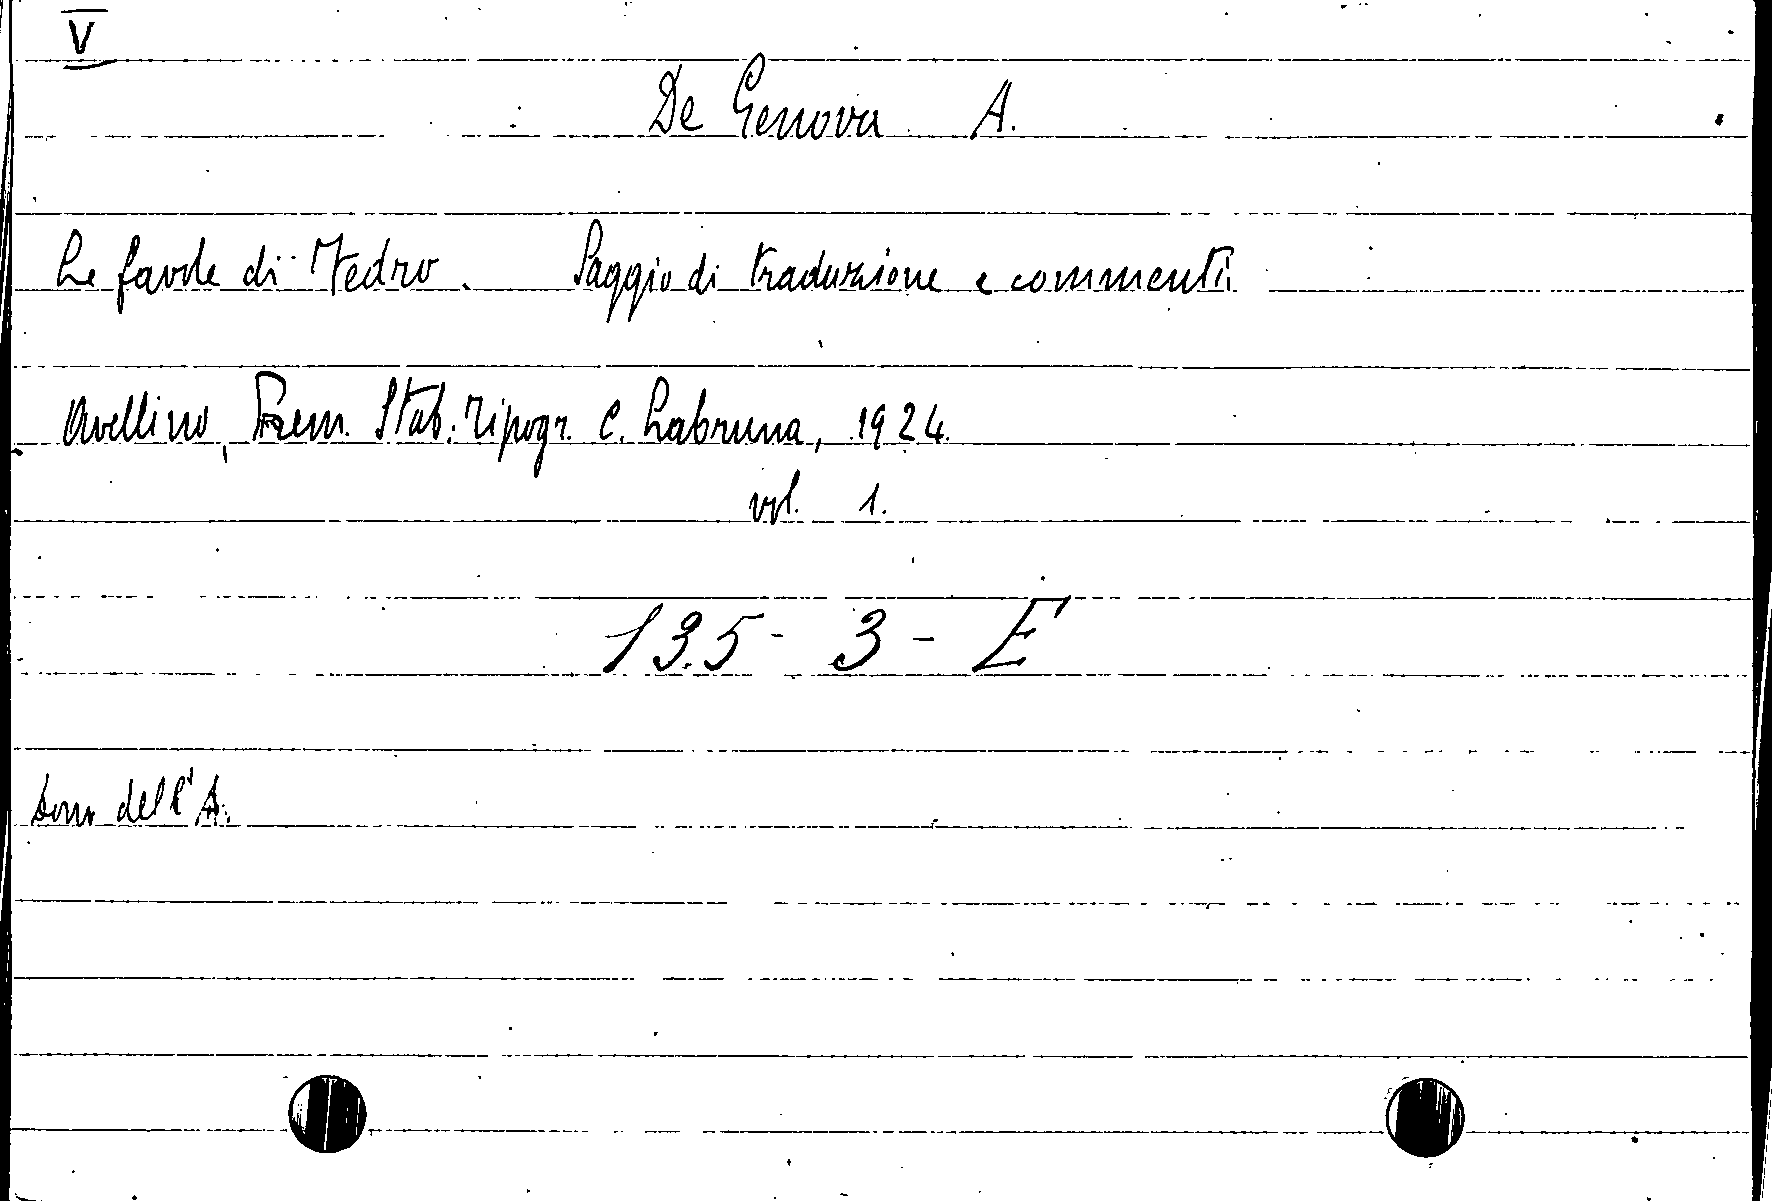 V
De Genova A.
Le favole di Fedro. Saggio di traduzione e commenti
Avellino, Prem. Stab. Tipogr. C. Labruna, 1924.
vol. 1.
135 - 3 - E
dono dell'A.